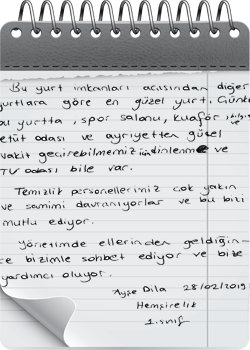 Bu yurt imkanları açısından diğer
yurtlara göre en güzel yurt. Çünkü
bu yurtta, spor salonu, kuaför
etüt odası ve ayriyetten güzel
vakit geçirebilmemiz için dinlenme ve
TV odası bile var.
Temizlik personellerimiz çok yakın
ve samimi davranıyorlar ve bu bizi
mutlu ediyor.
Yönetimde ellerinden geldiğin-
ce bizimle sohbet ediyor ve bize
yardımcı oluyor.
Ayşe Dila 28/02/2019
Hemşirelik
1.sınıf